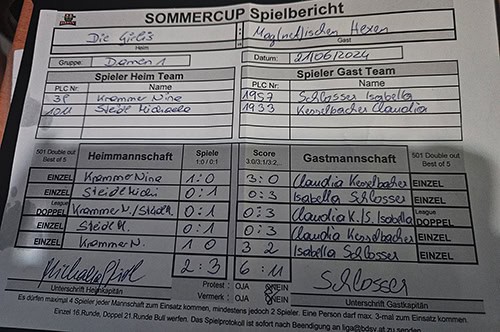 SOMMERCUP Spielbericht
Die Girlis Heim Mag(ne)tischen Hexen Gast
Gruppe: Damen 1 Datum: 21/06/2024
Spieler Heim Team Spieler Gast Team
PLC Nr: Name PLC Nr: Name
Krammer Nina 1957 Schlosser Isabella
1011 Steidl Michaela 1933 Kesselbacher Claudia
501 Double out Best of 5 Heimmannschaft Spiele 1:0 / 0:1 Score 3:0/3:1/3:2.. Gastmannschaft 501 Double out Best of 5
EINZEL Krammer Nina 1:0 3:0 Claudia Kesselbacher EINZEL
EINZEL Steidl Michi 0:1 0:3 Isabella Schlosser EINZEL
League DOPPEL Krammer N./Steidl M. 0:1 0:3 Claudia K./S. Isabella League DOPPEL
EINZEL Steidl M. 0:1 0:3 Claudia Kesselbacher EINZEL
EINZEL Krammer N. 1 0 3 2 Isabella Schlosser EINZEL
2:3 6:11 Schlosser
Unterschrift Heimkapitän Protest: OJA NEIN Unterschrift Gastkapitän
Vermerk: OJA NEIN
Es dürfen maximal 4 Spieler jeder Mannschaft zum Einsatz kommen, mindestens jedoch 2 Spieler. Eine Person darf max. 3-mal zum Einsatz kommen.
Einzel 16.Runde, Doppel 21.Runde Bull werfen. Das Spielprotokoll ist sofort nach Beendigung an liga@bdst.at zu senden